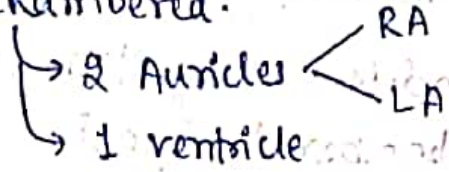 chambered.
RA
→ 2 Auricles
LA
→ 1 ventricle